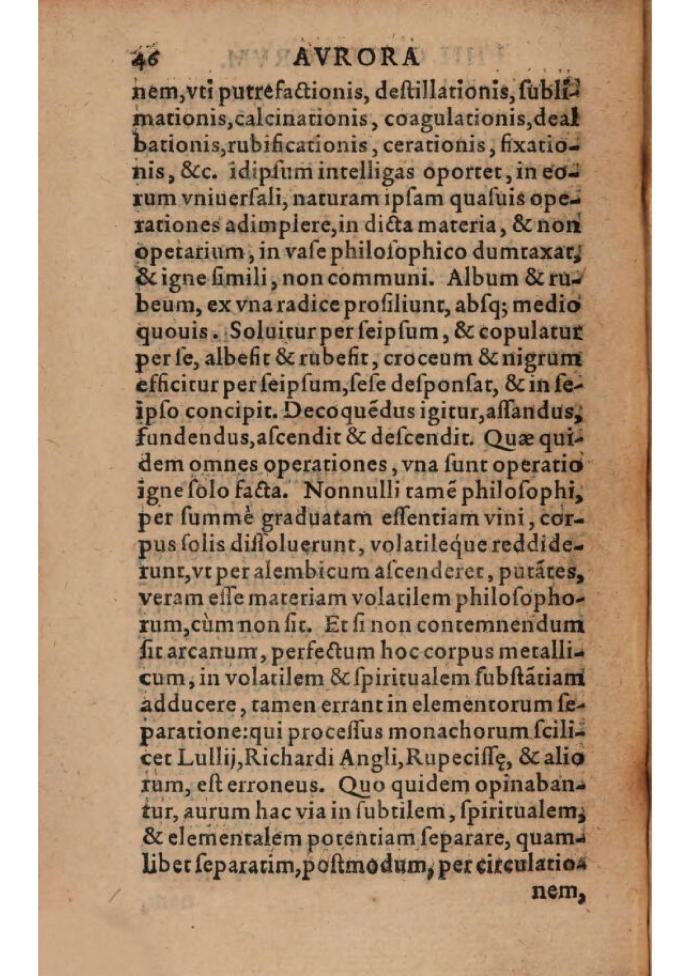 46 AVRORA
nem,vti putrefactionis, destillationis, subli-
mationis,calcinationis, coagulationis,deal
bationis,rubificationis, cerationis, fixatio-
nis, &c. idipsum intelligas oportet, in eo-
rum vniuersali, naturam ipsam quasuis ope-
rationes adimplere,in dicta materia, & non
operarium, in vase philosophico dumtaxat,
& igne simili, non communi. Album & ru-
beum, ex vna radice prosiliunt, absq; medio
quouis. Soluitur per seipsum, & copulatur
per se, albefit & rubefit, croceum & nigrum
efficitur per seipsum,sese desponsat, & in se-
ipso concipit. Decoquēdus igitur,assandus,
fundendus,ascendit & descendit. Quæ qui-
dem omnes operationes, vna sunt operatio
igne solo facta. Nonnulli tamē philosophi,
per summè graduatam essentiam vini, cor-
pus solis dissoluerunt, volatileque reddide-
runt,vt per alembicum ascenderet, putātes,
veram esse materiam volatilem philosopho-
rum,cùm non sit. Et si non contemnendum
sit arcanum, perfectum hoc corpus metalli-
cum, in volatilem & spiritualem substātiam
adducere, tamen errant in elementorum se-
paratione:qui processus monachorum scili-
cet Lullij,Richardi Angli,Rupecissę, & alio
rum, est erroneus. Quo quidem opinaban-
tur, aurum hac via in subtilem, spiritualem,
& elementalem potentiam separare, quam-
libet separatim,postmodum, per circulatio-
nem,